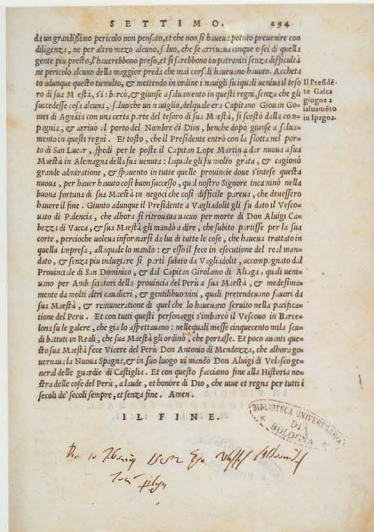 SETTIMO. 294
da un grandißimo pericolo non pensato, et che non si haueua potuto preuenire con
diligenza, ne per altro mezo alcuno, saluo, che se arriuaua cinque o sei di quella
gente piu presto, l'hauerebbono preso, et si sarebbono impatroniti senza difficultà
ne pericolo alcuno della maggior preda che mai corsali haueuano hauuto. Acchetato
adunque questo tumulto, & mettendo in ordine i nauigli su i quali ueniua il tesoro
di sua Maestà, si imbarcò, & giunse a saluamento in questi regni, senza che gli
succedesse cosa alcuna, saluo che un nauiglio, del quale era Capitano Giouan Gomez
di Agnaia con una certa parte del tesoro di sua Maestà, si scostò dalla compagnia,
& arriuò al porto del Nombre di Dios, benche dopo giunse a saluamento
in questi regni. Et tosto, che il Presidente entrò con la flotta nel porto
di San Lucar, spedì per le poste il Capitan Lope Martin a dar nuoua a sua
Maestà in Alemagna della sua uenuta: laquale gli fu molto grata, & cagionò
grande admiratione, & spauento in tutte quelle prouincie doue s'intese questa
nuoua, per hauer hauuto cosi buon successo, qual nostro Signore incaminò nella
buona fortuna di sua Maestà in negoci che cosi difficile pareua, che douessero
hauere il fine. Giunto adunque il Presidente a Vagliadolit gli fu dato il Vescouato
di Palencia, che alhora si ritrouaua uacuo per morte di Don Aluigi Cabezza
di Vacca, & sua Maestà gli mandò a dire, che subito partisse per la sua
corte, percioche uoleua informarsi da lui di tutte le cose, che haueua trattato in
quella impresa, allo quale lo mandò: & esso il fece in esecutione del real mandato,
& senza piu indugiare si partì subito da Vagliadolit, accompagnato dal
Prouinciale di San Dominico, & dal Capitan Girolamo di Aliaga, quali ueniuano
per Ambasciatori della prouincia del Perù a sua Maestà, & medesimamente
da molti altri cauallieri, & gentilhuomini, quali pretendeuano fauori da
sua Maestà, & remuneratione di quel che lo haueuano seruito nella pacificatione
del Peru. Et con tutti questi personaggi s'imbarcò il Vescouo in Barcelona
su le galere, che gia lo aspettauano: nellequali messe cinquecento mila scudi
battuti in Reali, che sua Maestà gli ordinò, che portasse. Et poco auanti questo
sua Maestà fece Vicere del Perù Don Antonio di Mendozza, che alhora gouernaua
la Nuoua Spagna, & in suo luogo ui mandò Don Aluigi di Velasco general
delle guardie di Castiglia. Et con questo facciamo fine alla Historia nostra
delle cose del Perù, a laude, et honore di Dio, che uiue et regna per tutti i
secoli de' secoli sempre, et senza fine. Amen.
Il Presidente
Gasca
giugne a
saluamẽto
in Ispagna.
IL FINE.
BIBLIOTECA UNIVERSITARIA
DI
BOLOGNA